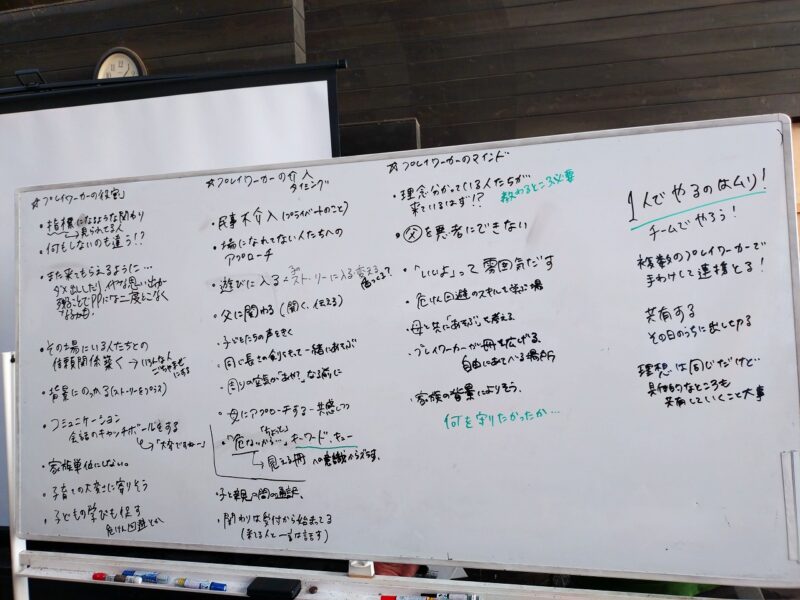 ☆プレイワーカーの役割
・指標になるような関わり
→見られてる人
・何もしないのも違う!?
・また来てもらえるように…
ダメ出ししたり、イヤな思い出が
残ることでPPには二度とこなく
なるかも。
・その場にいる人たちとの
信頼関係築く→いろんな人
ごちゃまぜにする
・背景にのっかる(ストーリーをプラス)
・コミュニケーション
会話のキャッチボールをする
→「大変ですねー」
・家族単位にしない。
・子育ての大変さに寄りそう
・子どもの学びも促す
危けん回避とか
☆プレイワーカーの介入
タイミング
・民事不介入(プライベートのこと)
・場になれてない人たちへの
アプローチ
・遊びに入る
ストーリーに入る
変える
・父に関わる(聞く、伝える)
・子どもたちの声をきく
・同じ長さの剣をもって一緒にあそぶ
・周りの空気が「あれ?」なる前に
・母にアプローチする 共感しつつ
・「危ないから…」キーワード、キュー
→見える冊への意識からズラす。
・子と親の間の通訳、
・関わりは受付から始まってる
(来てる人と一言は話す)
☆プレイワーカーのマインド
・理念分かっている人たちが
来ているはず!?
教わるところ必要
・父を悪者にできない
・「いいよ」って雰囲気だす
・危けん回避のスキルを学ぶ場
・母と共に「あそぶ」を考える
・プレイワーカーが冊を広げる
自由にあそべる場所
・家族の背景によりそう、
何を守りたかったか…
1人でやるのはムリ!
チームでやろう!
複数のプレイワーカーで
手わけして連携とる!
共有する
その日のうちに出しきる
理想は同じだけど…
具体的なところも
共有していくこと大事